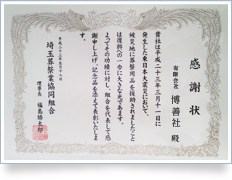 感謝状
有限会社 博善社 殿
貴社は平成二十三年三月十一日に
発生した東日本大震災において、
被災地に葬祭用品を援助されましたこと
は復興への一助に大きな光であります。
よってその功績に対し、組合を代表して感
謝申し上げ、記念品を添えて表彰いたしま
す。
埼玉葬祭業協同組合
理事長